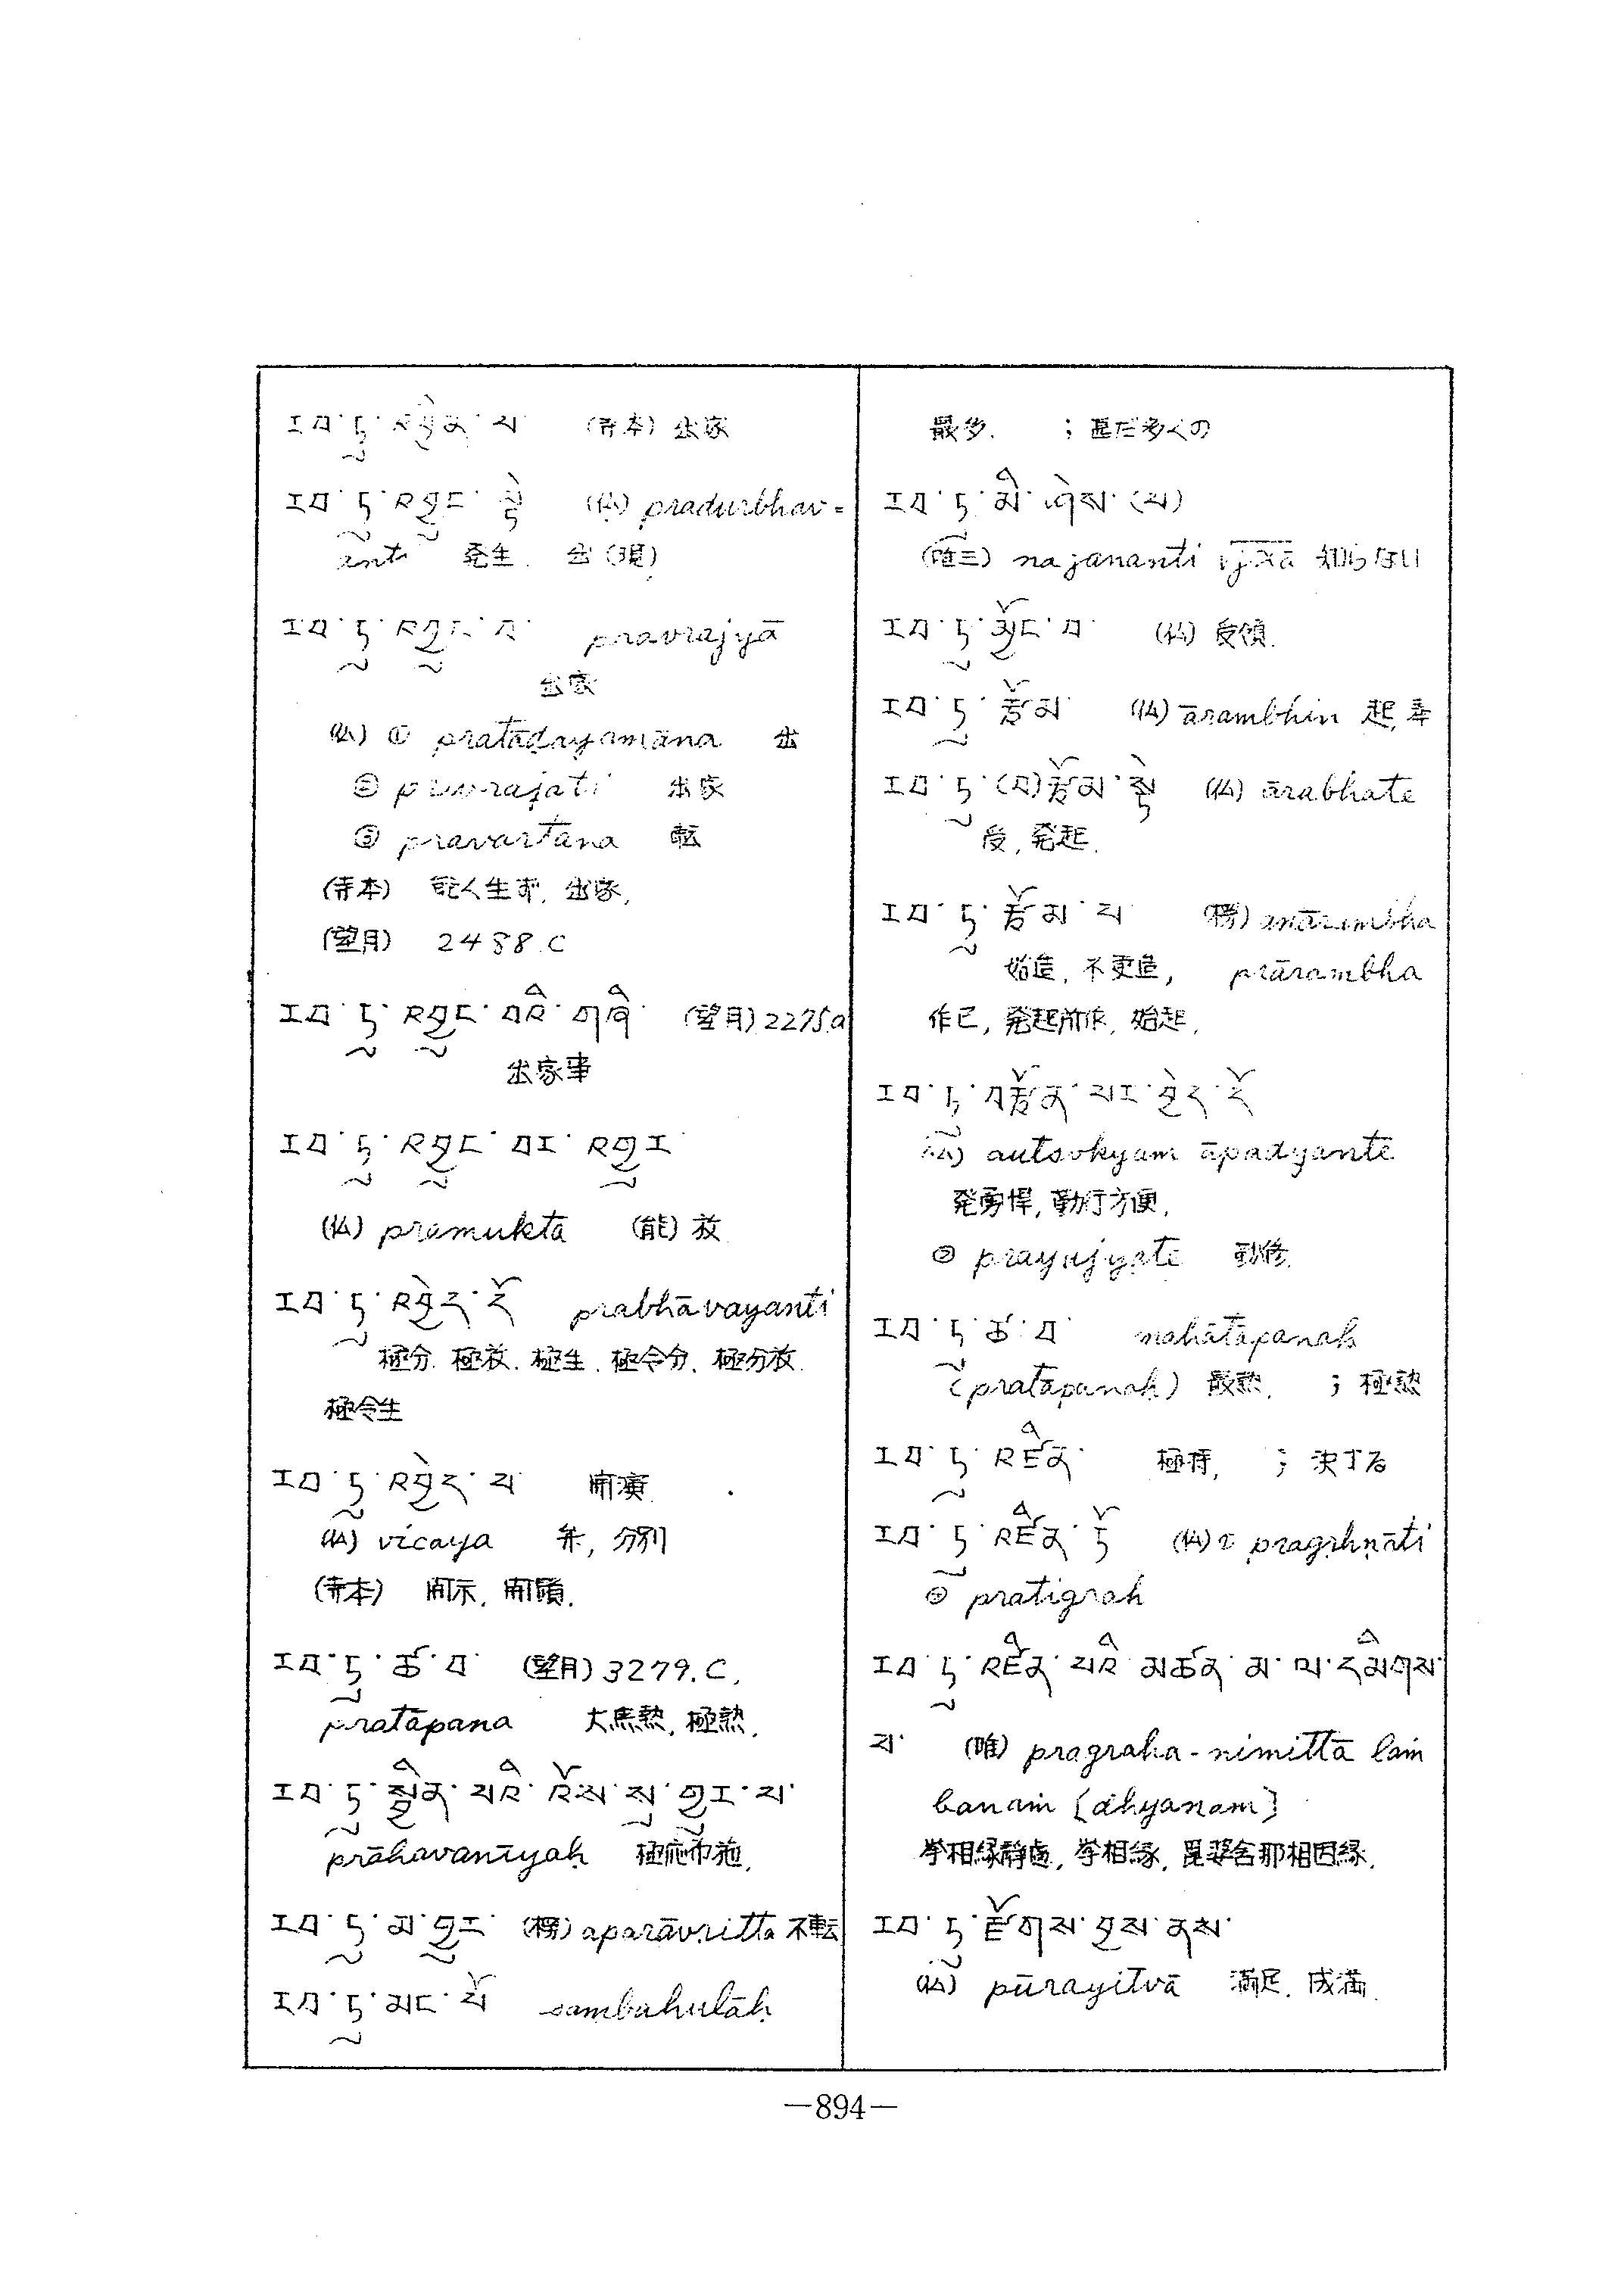 རབ་ཏུ་འབྱིན་པ་ (寺本) 出家
རབ་ཏུ་འབྱུང་སྟེ (仏) pradurbhav=
anti 発生. 出(現)
རབ་ཏུ་འབྱུང་བ་ pravrajyā
出家
(仏) ① pratāḍayamāna 出
② pravrajati 出家
③ pravartana 転
(寺本) 乾人生耶. 出家.
(望月) 2488.C
རབ་ཏུ་འབྱུང་བའི་གཞི་ (望月) 2275.a
出家事
རབ་ཏུ་འབྱུང་བར་འགྱུར་
(仏) pramukta (能) 放
རབ་ཏུ་འབྱེད་དོ prabhāvayanti
極分. 極放. 極生. 極令分. 極分放.
極令生
རབ་ཏུ་འབྱེད་པ་ 開演
(仏) vicaya 釆, 分別
(寺本) 開示. 開顕.
རབ་ཏུ་ཚ་བ་ (望月) 3279.C.
pratāpana 大焦熱, 極熱.
རབ་ཏུ་སྦྱིན་པའི་འོས་སུ་གྱུར་པ་
prāhavanīyaḥ 極応布施.
རབ་ཏུ་མི་གྱུར་ (楞) aparāvritta 不転
རབ་ཏུ་མང་པོ sambahulāḥ
最多. ; 甚だ多くの
རབ་ཏུ་མི་ཤེས་(པ)
(唯三) na jananti 知らない
རབ་ཏུ་མྱོང་བ་ (仏) 受領.
རབ་ཏུ་རྩོམ་ (仏) ārambhin 起, 奉
རབ་ཏུ་(བ)རྩོམ་སྟེ (仏) ārabhate
受, 発起.
རབ་ཏུ་རྩོམ་པ་ (楞) anārambha
始造, 不更造, prārambha
作已, 発起前作, 始起.
རབ་ཏུ་བརྩོན་པར་བྱེད་དོ
(仏) autsukyam āpadyante
発勇悍, 勤行方便,
② prayujyate 勤修.
རབ་ཏུ་ཚ་བ་ mahātāpanaḥ
(pratāpanaḥ) 最熱. ; 極熱
རབ་ཏུ་འཛིན་ 極持, ; 決する
རབ་ཏུ་འཛིན་ཏོ (仏) ① pragṛhṇāti
② pratigrah
རབ་ཏུ་འཛིན་པའི་མཚན་མ་ལ་དམིགས་
པ་ (唯) pragraha-nimittā lam
banaṃ [dhyanam]
挙相縁静慮, 挙相縁, 毘婆舎那相因縁.
རབ་ཏུ་རྫོགས་བྱས་ནས་
(仏) pūrayitvā 満足. 成満.
—894—